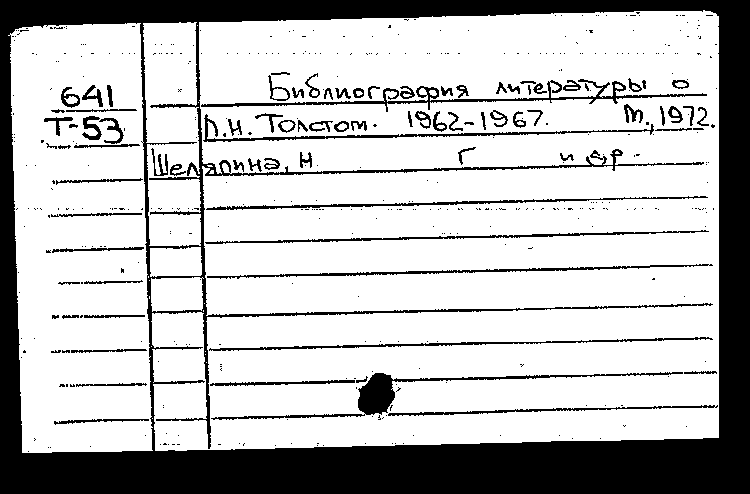 641
Т-53
Библиография литературы о
Л.Н. Толстом. 1962-1967. М., 1972.
Шеляпина, Н. Г и др.